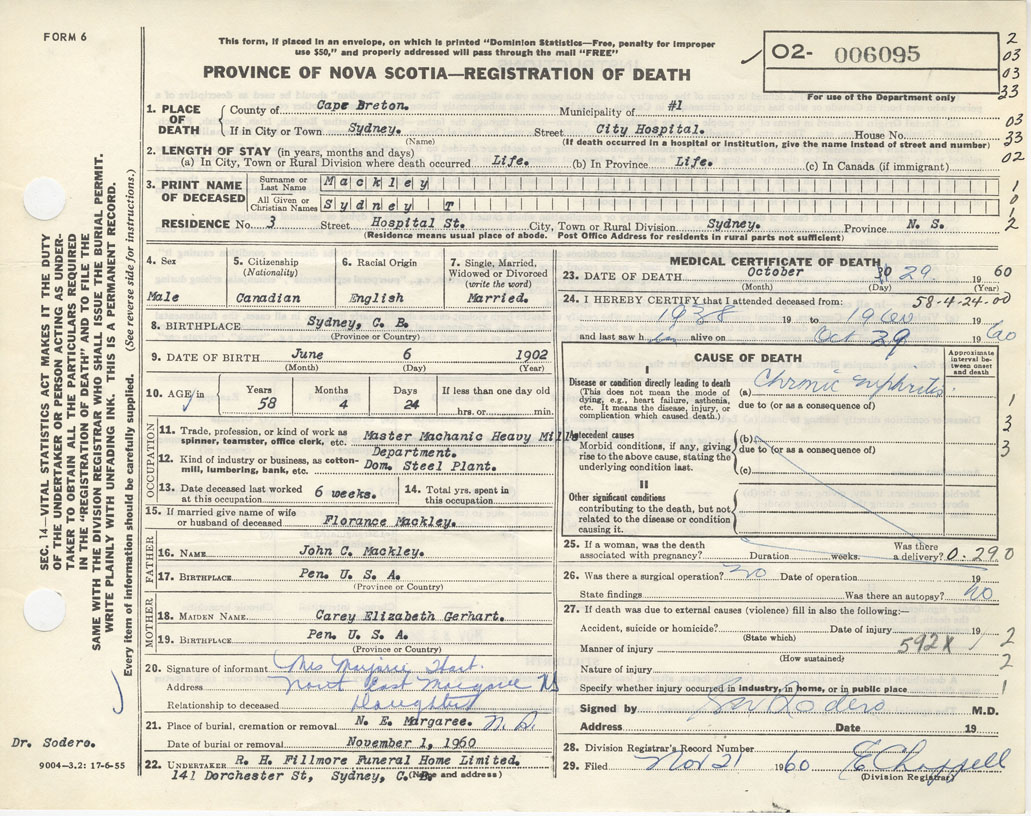 FORM 6
This form, if placed in an envelope, on which is printed "Dominion Statistics—Free, penalty for improper
use $50," and properly addressed will pass through the mail "FREE"
PROVINCE OF NOVA SCOTIA—REGISTRATION OF DEATH
02- 006095
For use of the Department only
2
03
03
33
03
33
02
1. PLACE OF DEATH
County of Cape Breton. Municipality of #1
If in City or Town Sydney. Street City Hospital. House No.
(Name) (If death occurred in a hospital or institution, give the name instead of street and number)
2. LENGTH OF STAY (in years, months and days)
(a) In City, Town or Rural Division where death occurred Life. (b) In Province Life. (c) In Canada (if immigrant)
3. PRINT NAME OF DECEASED
Surname or Last Name Mackley
All Given or Christian Names Sydney T
1
0
1
2
RESIDENCE No. 3 Street Hospital St. City, Town or Rural Division Sydney. Province N. S.
(Residence means usual place of abode. Post Office Address for residents in rural parts not sufficient)
4. Sex
Male
5. Citizenship
(Nationality)
Canadian
6. Racial Origin
English
7. Single, Married,
Widowed or Divorced
(write the word)
Married.
8. BIRTHPLACE Sydney, C. B.
(Province or Country)
9. DATE OF BIRTH June 6 1902
(Month) (Day) (Year)
10. AGE in
Years 58
Months 4
Days 24
If less than one day old
hrs. or min.
OCCUPATION
11. Trade, profession, or kind of work as
spinner, teamster, office clerk, etc. Master Machanic Heavy Mills
Department.
12. Kind of industry or business, as cotton-
mill, lumbering, bank, etc. Dom. Steel Plant.
13. Date deceased last worked
at this occupation 6 weeks.
14. Total yrs. spent in
this occupation
15. If married give name of wife
or husband of deceased Florance Mackley.
FATHER
16. NAME John C. Mackley.
17. BIRTHPLACE Pen. U. S. A.
(Province or Country)
MOTHER
18. MAIDEN NAME Carey Elizabeth Gerhart.
19. BIRTHPLACE Pen. U. S. A.
(Province or Country)
20. Signature of informant Mrs Marjorie Hart.
Address North East Margaree NS
Relationship to deceased Daughter
21. Place of burial, cremation or removal N. E. Margaree. N.S.
Date of burial or removal November 1, 1960
22. UNDERTAKER R. H. Fillmore Funeral Home Limited.
141 Dorchester St, Sydney, C. B.
(Name and address)
MEDICAL CERTIFICATE OF DEATH
23. DATE OF DEATH October 30 29 1960
(Month) (Day) (Year)
24. I HEREBY CERTIFY that I attended deceased from: 58-4-24-00
1938 19 to 1960 19
and last saw him alive on Oct 29 19 60
CAUSE OF DEATH
Approximate interval between onset and death
I
Disease or condition directly leading to death
(This does not mean the mode of
dying, e.g., heart failure, asthenia,
etc. It means the disease, injury, or
complication which caused death.)
(a) Chronic nephritis
due to (or as a consequence of)
Antecedent causes
Morbid conditions, if any, giving
rise to the above cause, stating the
underlying condition last.
(b)
due to (or as a consequence of)
(c)
II
Other significant conditions
contributing to the death, but not
related to the disease or condition
causing it.
1
3
3
25. If a woman, was the death
associated with pregnancy? Duration weeks. Was there
a delivery? 0.290
26. Was there a surgical operation? no Date of operation 19
State findings Was there an autopsy? no
27. If death was due to external causes (violence) fill in also the following:—
Accident, suicide or homicide? Date of injury 19
(State which)
Manner of injury 592X
(How sustained)
Nature of injury
Specify whether injury occurred in industry, in home, or in public place
2
2
1
Signed by Sodero M.D.
Address Date 19
28. Division Registrar's Record Number
29. Filed Nov 21 1960 E Chappell
(Division Registrar)
SEC. 14—VITAL STATISTICS ACT MAKES IT THE DUTY
OF THE UNDERTAKER OR PERSON ACTING AS UNDER-
TAKER TO OBTAIN ALL THE PARTICULARS REQUIRED
IN THE "REGISTRATION OF DEATH" AND TO FILE THE
SAME WITH THE DIVISION REGISTRAR WHO SHALL ISSUE THE BURIAL PERMIT.
WRITE PLAINLY WITH UNFADING INK. THIS IS A PERMANENT RECORD.
Every item of information should be carefully supplied. (See reverse side for instructions.)
Dr. Sodero.
9004-3.2: 17-6-55